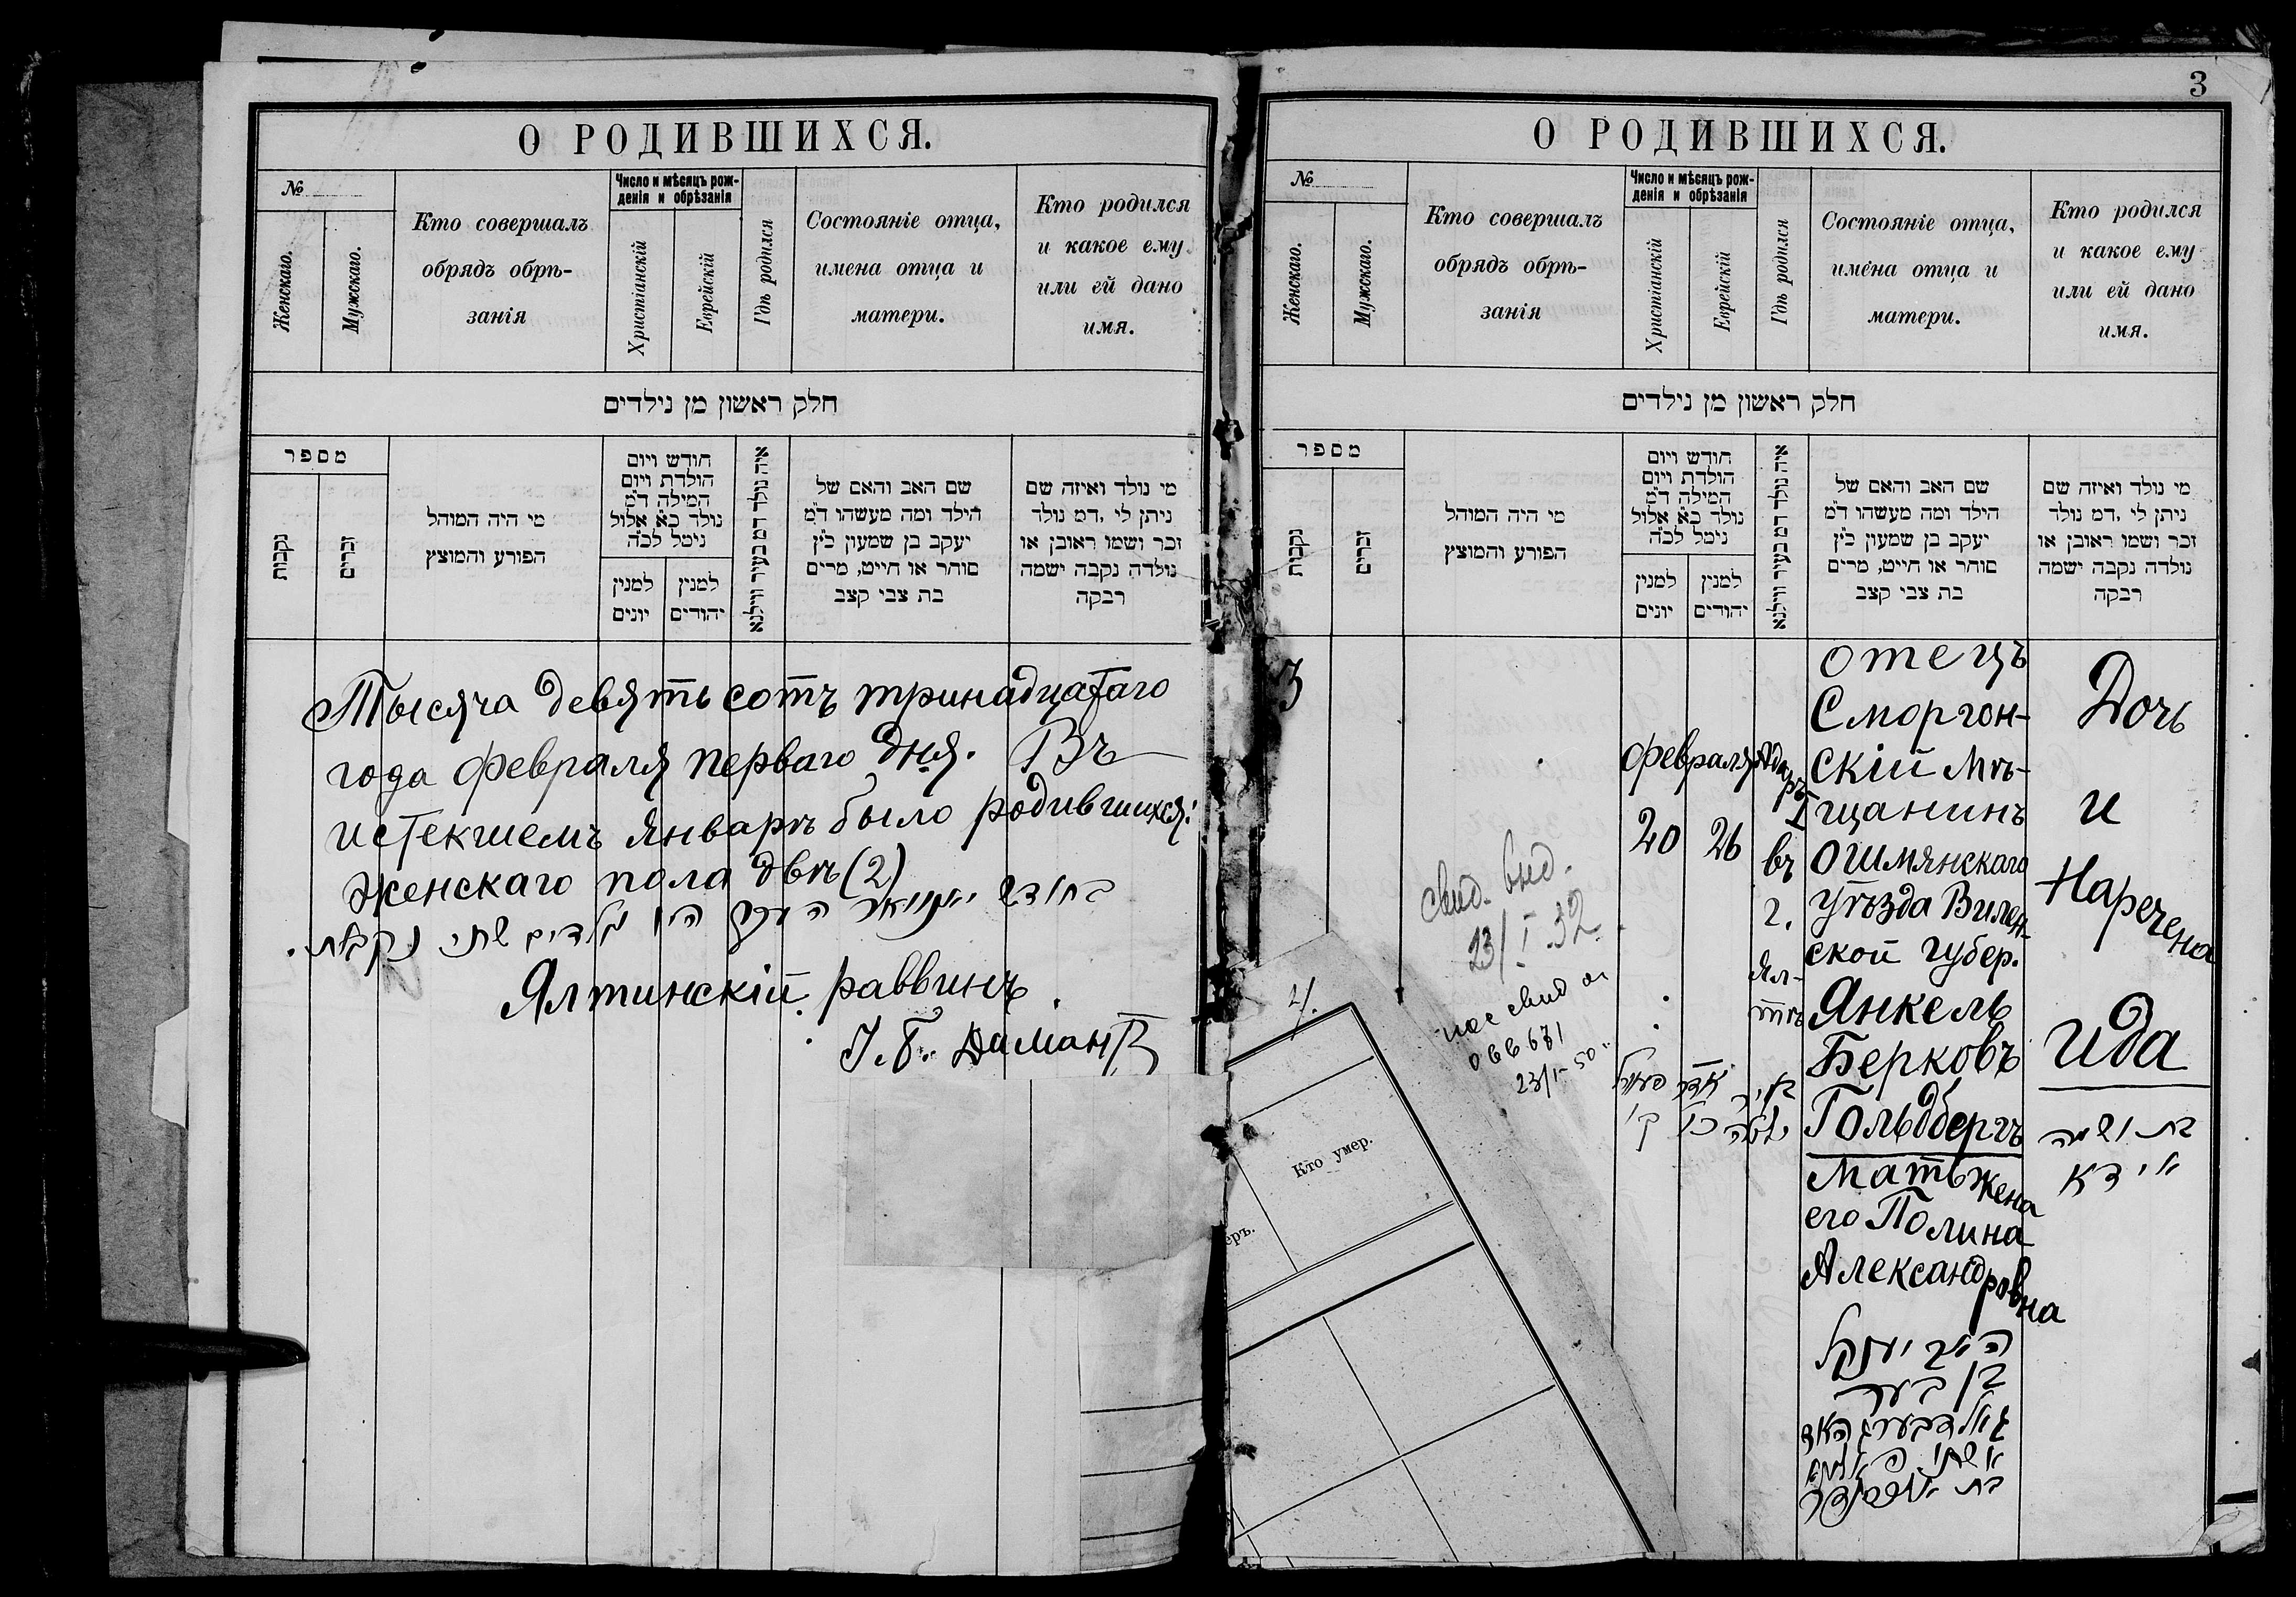 О РОДИВШИХСЯ.
№
Женскаго.
Мужскаго.
Кто совершалъ
обрядъ обрѣ-
занія
Число и мѣсяцъ рож-
денія и обрѣзанія
Христіанскій
Еврейскій
Гдѣ родился
Состояніе отца,
имена отца и
матери.
Кто родился
и какое ему
или ей дано
имя.
חלק ראשון מן נילדים
מספר
נקבות
זכרים
מי היה המוהל
הפורע והמוצץ
חודש ויום
הולדת ויום
המילה ד"מ
נולד כ"א אלול
ניטל לכ"ה
למנין
יונים
למנין
יהודים
איה נולד דמ בעיר ווילנא
שם האב והאם של
הילד ומה מעשהו ד"מ
יעקב בן שמעון כ"ץ
סוחר או חייט, מרים
בת צבי קצב
מי נולד ואיזה שם
ניתן לי ,דמ נולד
זכר ושמו ראובן או
נולדה נקבה ישמה
רבקה
Тысяча девятьсотъ тринадцатаго
года февраля перваго дня. Въ
истекшемъ январѣ было родившихся:
женскаго пола двѣ (2)
בחודש יאנואר היו נולדים שתי נקבות.
Ялтинскій раввинъ
3
О РОДИВШИХСЯ.
№
Женскаго.
Мужскаго.
Кто совершалъ
обрядъ обрѣ-
занія
Число и мѣсяцъ рож-
денія и обрѣзанія
Христіанскій
Еврейскій
Гдѣ родился
Состояніе отца,
имена отца и
матери.
Кто родился
и какое ему
или ей дано
имя.
חלק ראשון מן נילדים
מספר
נקבות
זכרים
מי היה המוהל
הפורע והמוצץ
חודש ויום
הולדת ויום
המילה ד"מ
נולד כ"א אלול
ניטל לכ"ה
למנין
יונים
למנין
יהודים
איה נולד דמ בעיר ווילנא
שם האב והאם של
הילד ומה מעשהו ד"מ
יעקב בן שמעון כ"ץ
סוחר או חייט, מרים
בת צבי קצב
מי נולד ואיזה שם
ניתן לי ,דמ נולד
זכר ושמו ראובן או
נולדה נקבה ישמה
רבקה
3
свид. выд.
23/I.32
23/I-50
февраля
20
Адаръ I
26
въ
г.
Ял-
тѣ
отецъ
Сморгон-
скій мѣ-
щанинъ
Ошмянскаго
уѣзда Вилен-
ской губер.
Янкель
Берковъ
Гольдбергъ
мать жена
его Полина
Александровна
האב יענקל
בן בער
גאלדבערג האם
אשתו פאלינא
בת אלכסנדר
Дочь
и
Наречена
Ида
בת ושמה
אידא
Кто умер.
еръ.